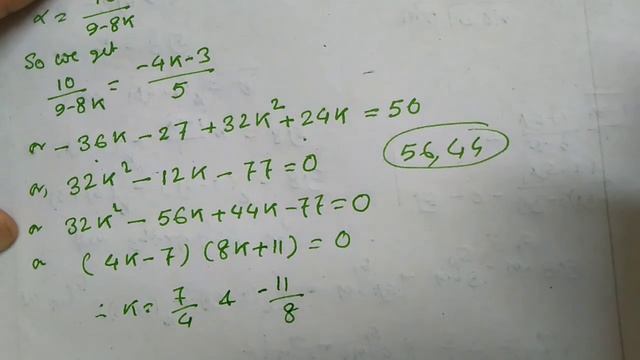 α = 10/9-8K
So we get
10/9-8K = -4K-3/5
~ -36K - 27 + 32K² + 24K = 50
~, 32K² - 12K - 77 = 0
56, 44
~ 32K² - 56K + 44K - 77 = 0
~ (4K-7) (8K+11) = 0
∴ K = 7/4 & -11/8